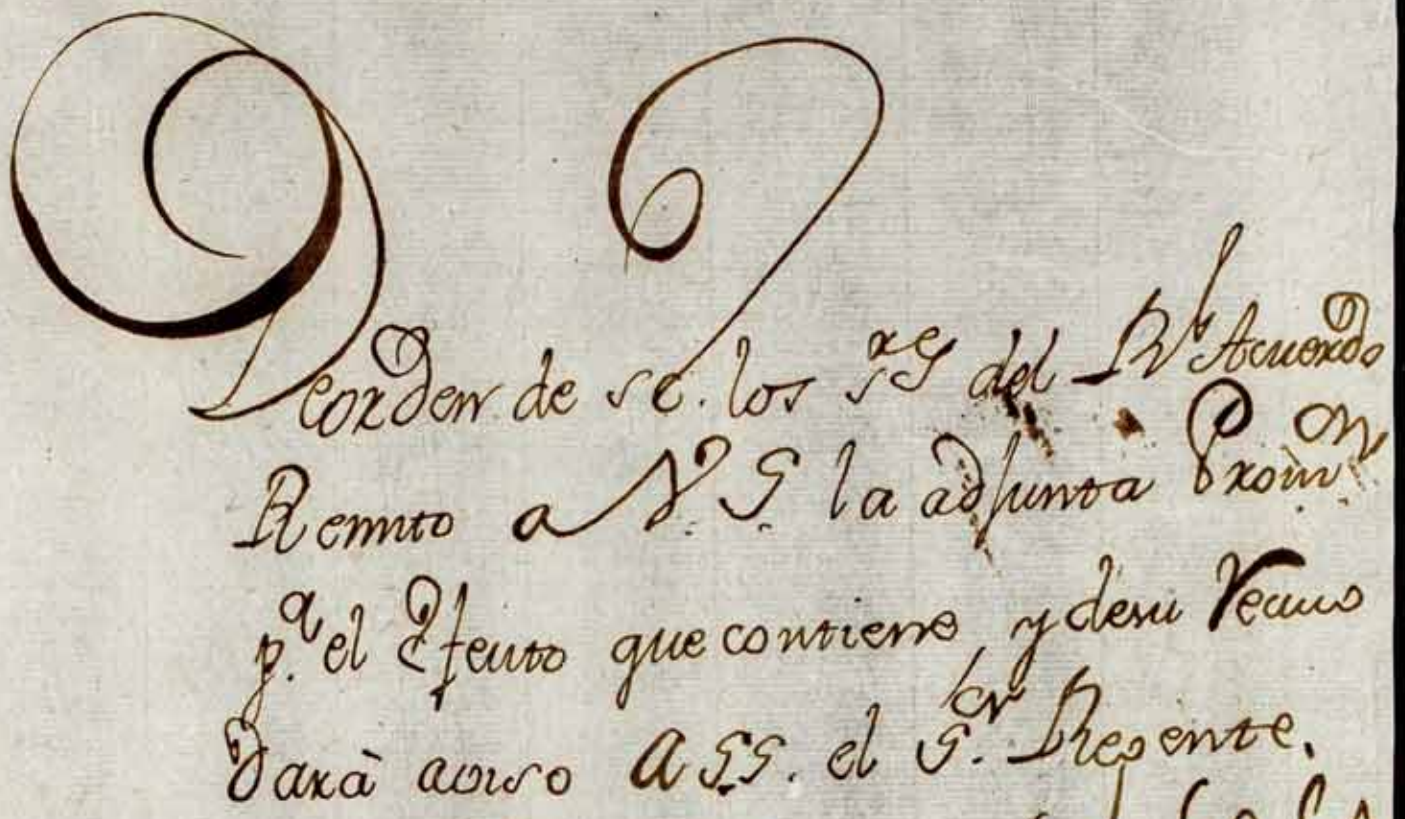 De orden de S.E. los S.res del R.l Acuerdo
Remito a V.S. la adjunta Prov.on
p.a el Efecto que contiene, y de su Recivo
dará aviso a S.S. el S.or Regente.